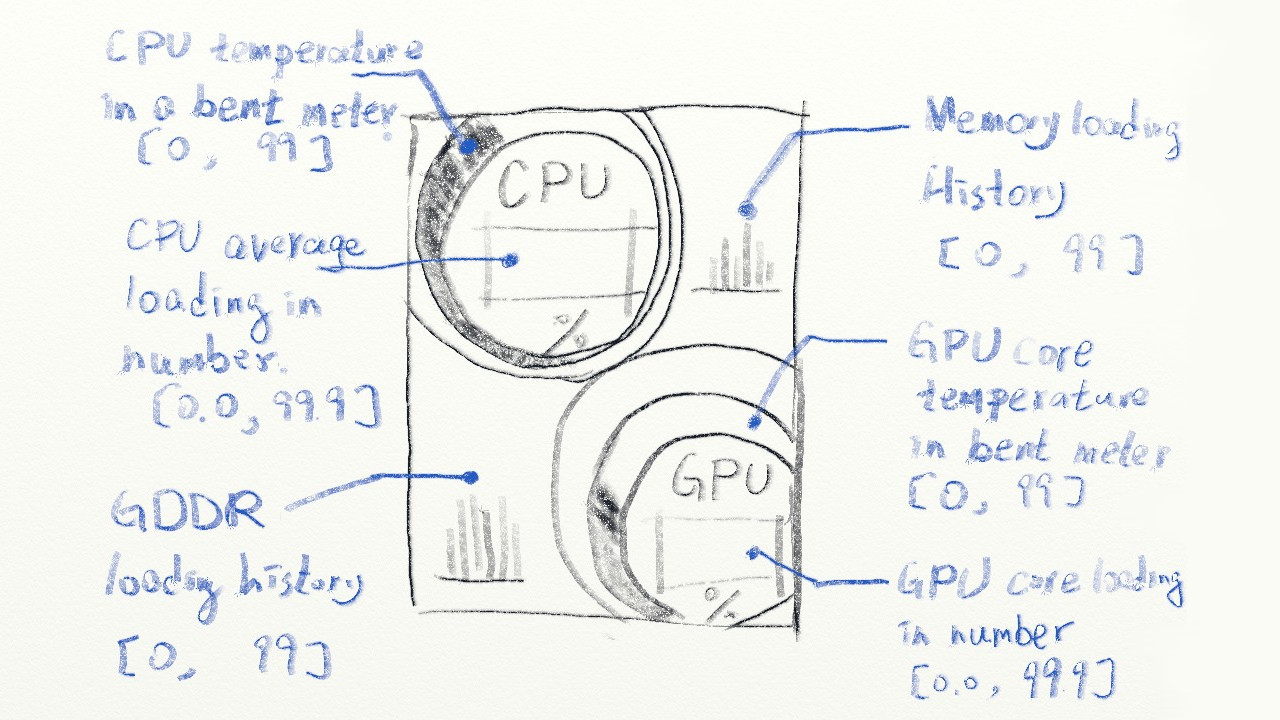 CPU temperature
in a bent meter.
[0, 99]
CPU average
loading in
number.
[0.0, 99.9]
GDDR
loading history
[0, 99]
CPU
%
GPU
%
Memory loading
History
[0, 99]
GPU core
temperature
in bent meter
[0, 99]
GPU core loading
in number
[0.0, 99.9]